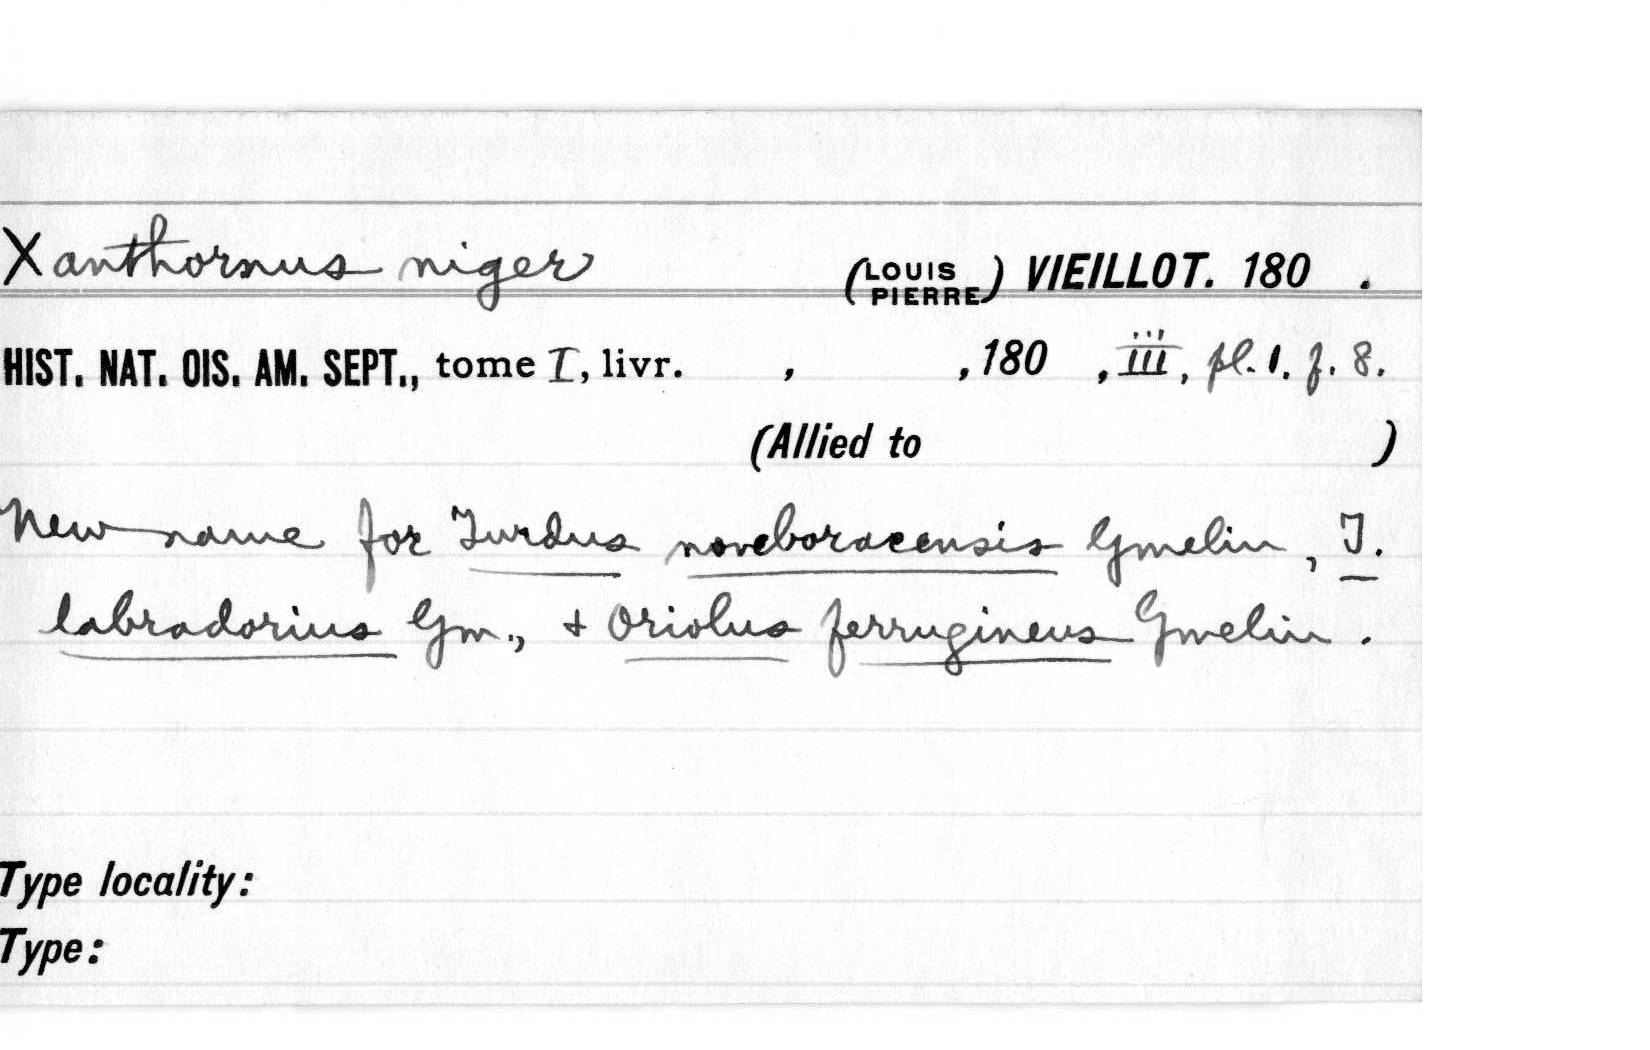 Xanthornus niger (LOUIS PIERRE) VIEILLOT. 180 .
HIST. NAT. OIS. AM. SEPT., tome I, livr. , , 180 , iii, pl. 1. f. 8.
(Allied to )
New name for Turdus noveboracensis Gmelin, T.
labradorius Gm., & Oriolus ferrugineus Gmelin.
Type locality:
Type: